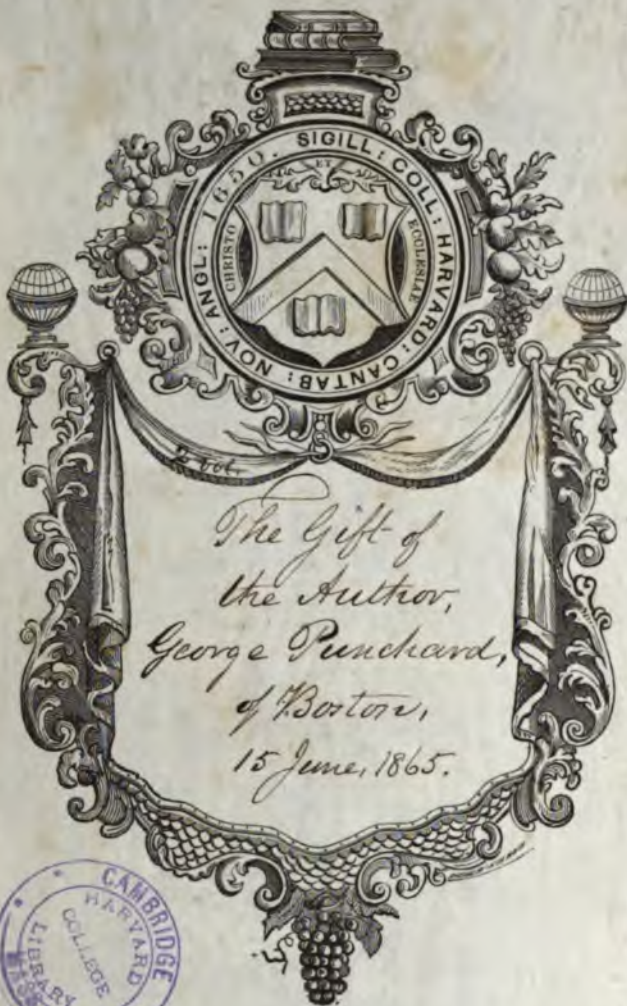 SIGILL: COLL: HARVARD: CANTAB: NOV: ANGL: 1650.
ET
CHRISTO
ECCLESIAE
2 vol.
The Gift of
the Author,
George Punchard,
of Boston,
15 June, 1865.
CAMBRIDGE
HARVARD
COLLEGE
LIBRARY
MASS